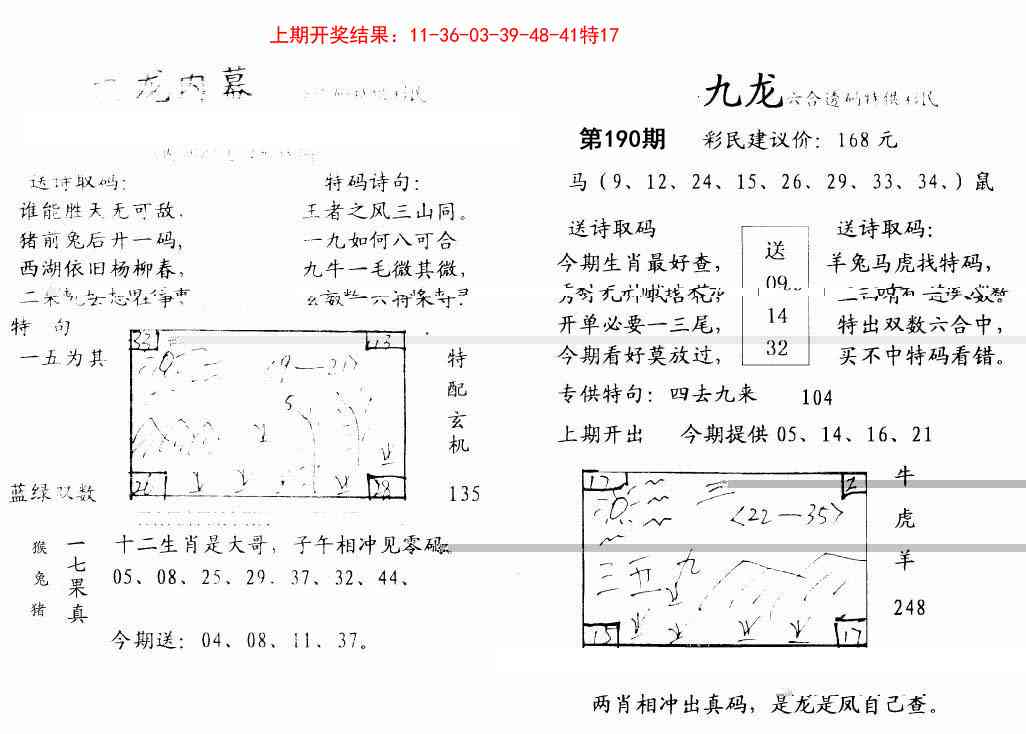 上期开奖结果：11-36-03-39-48-41特17
龙内幕
送诗取码：
谁能胜天无可敌，
猪前兔后廾一码，
西湖依旧杨柳春，
特码诗句：
王者之风三山同。
一九如何八可合
九牛一毛微其微，
特 句
一五为其
33
13
5
28
特配玄机
135
蓝绿双数
猴兔猪
一七果真
十二生肖是大哥，子午相冲见零码。
05、08、25、29．37、32、44、
今期送：04、08、11、37。
九龙六合透码特供彩民
第190期 彩民建议价：168 元
马（9、12、24、15、26、29、33、34、）鼠
送诗取码
今期生肖最好查，
开单必要一三尾，
今期看好莫放过，
送
09
14
32
送诗取码：
羊兔马虎找特码，
特出双数六合中，
买不中特码看错。
专供特句：四去九来 104
上期开出 今期提供 05、14、16、21
17
2
三
<22—35>
三五九
15
17
牛
虎
羊
248
两肖相冲出真码，是龙是凤自己查。